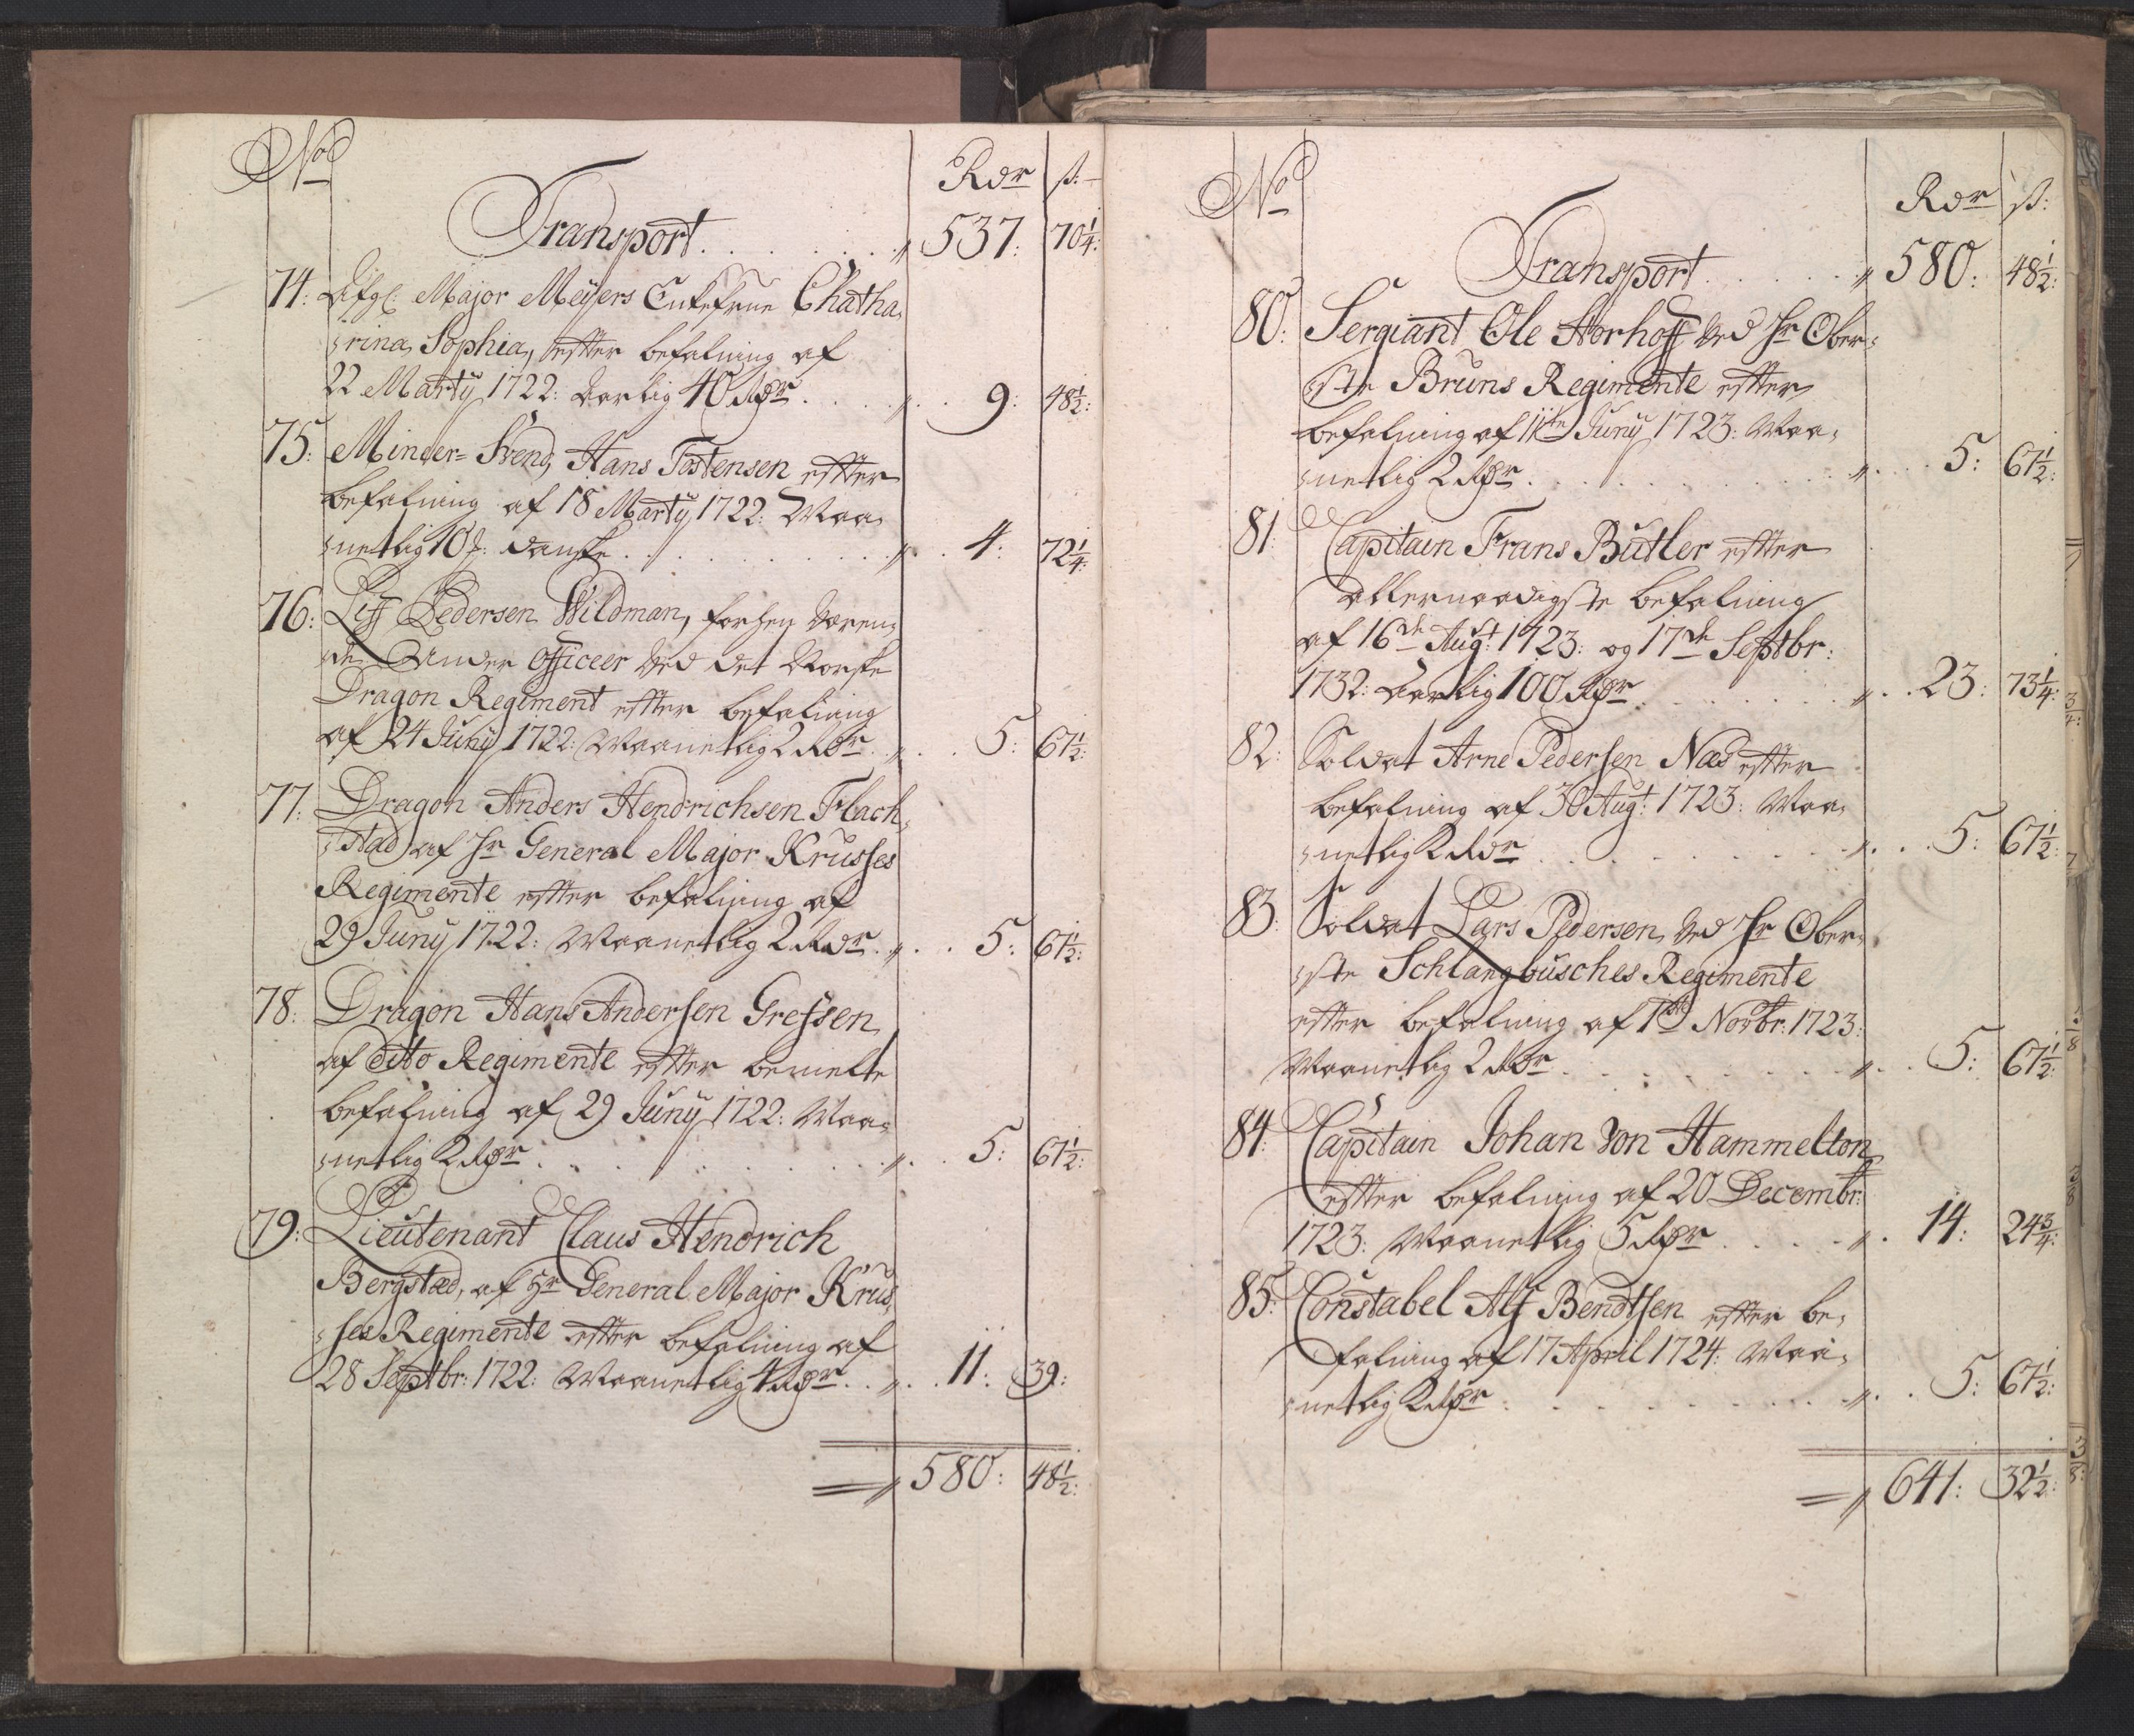 No
Rdr ß:
Transport . . . . . . . 537: 70¼:
74: Afgl: Major Meÿers Enkefrue Chatha,
,rina Sophia, effter befalning af
22 Martÿ 1722: Aarlig 40 Rdr . . . . 9: 48½:
75: Minder= Svend, Hans Tostensen effter
befalning af 18 Martÿ 1722: Maa,
,netlig 10 ß: danske . . . . . . 4: 72¼:
76: Leff Pedersen Wildman, forhen Væren,
,de Under Officeer ved det Norske
Dragon Regiment effter befalning
af 24 Junÿ 1722: Maanetlig 2 Rdr . . . 5: 67½:
77: Dragon Anders Hendrichsen Flach,
,stad af Hr General Major Krusses
Regimente effter befalning af
29 Junÿ 1722: Maanetlig 2 Rdr . . . 5: 67½:
78: Dragon Hans Andersen Gressen
af dito Regimente effter bemelte
befalning af 29 Junÿ 1722: Maa,
,netlig 2 Rdr . . . . . . 5: 67½:
79: Lieutenant Claus Hendrich
Bergstæd, af Hr General Major Krus,
,ses Regimente effter befalning af
28 Septbr: 1722: Maanetlig 4 Rdr . . . 11: 39:
= 580: 48½:
No
Rdr ß:
Transport . . . . . . 580: 48½:
80: Sergiant Ole Storhoff ved Hr Ober,
,ste Bruns Regimente effter
befalning af 11te Junÿ 1723: Maa,
,netlig 2 Rdr . . . . . . . 5: 67½:
81: Capitain Frans Butler effter
allernaadigste befalning
af 16de Augt: 1723: og 17de Septbr:
1732: Aarlig 100 Rdr . . . . . . 23: 73¼:
82: Soldat Arne Pedersen Næs effter
befalning af 30 Augt: 1723: Maa,
,netlig 2 Rdr . . . . . . . 5: 67½:
83: Soldat Lars Pedersen, ved Hr Ober,
,ste Schlangbusches Regimente
effter befalning af 1ste Novbr: 1723:
Maanetlig 2 Rdr . . . . . . . 5: 67½:
84: Capitain Johan von Hammelton
effter befalning af 20 Decembr:
1723: Maanetlig 5 Rdr . . . . . 14: 24¾:
85: Constabel Alf Bendtsen effter be,
,falning af 17 April 1724: Maa,
,netlig 2 Rdr . . . . . . . 5: 67½:
= 641: 32½: